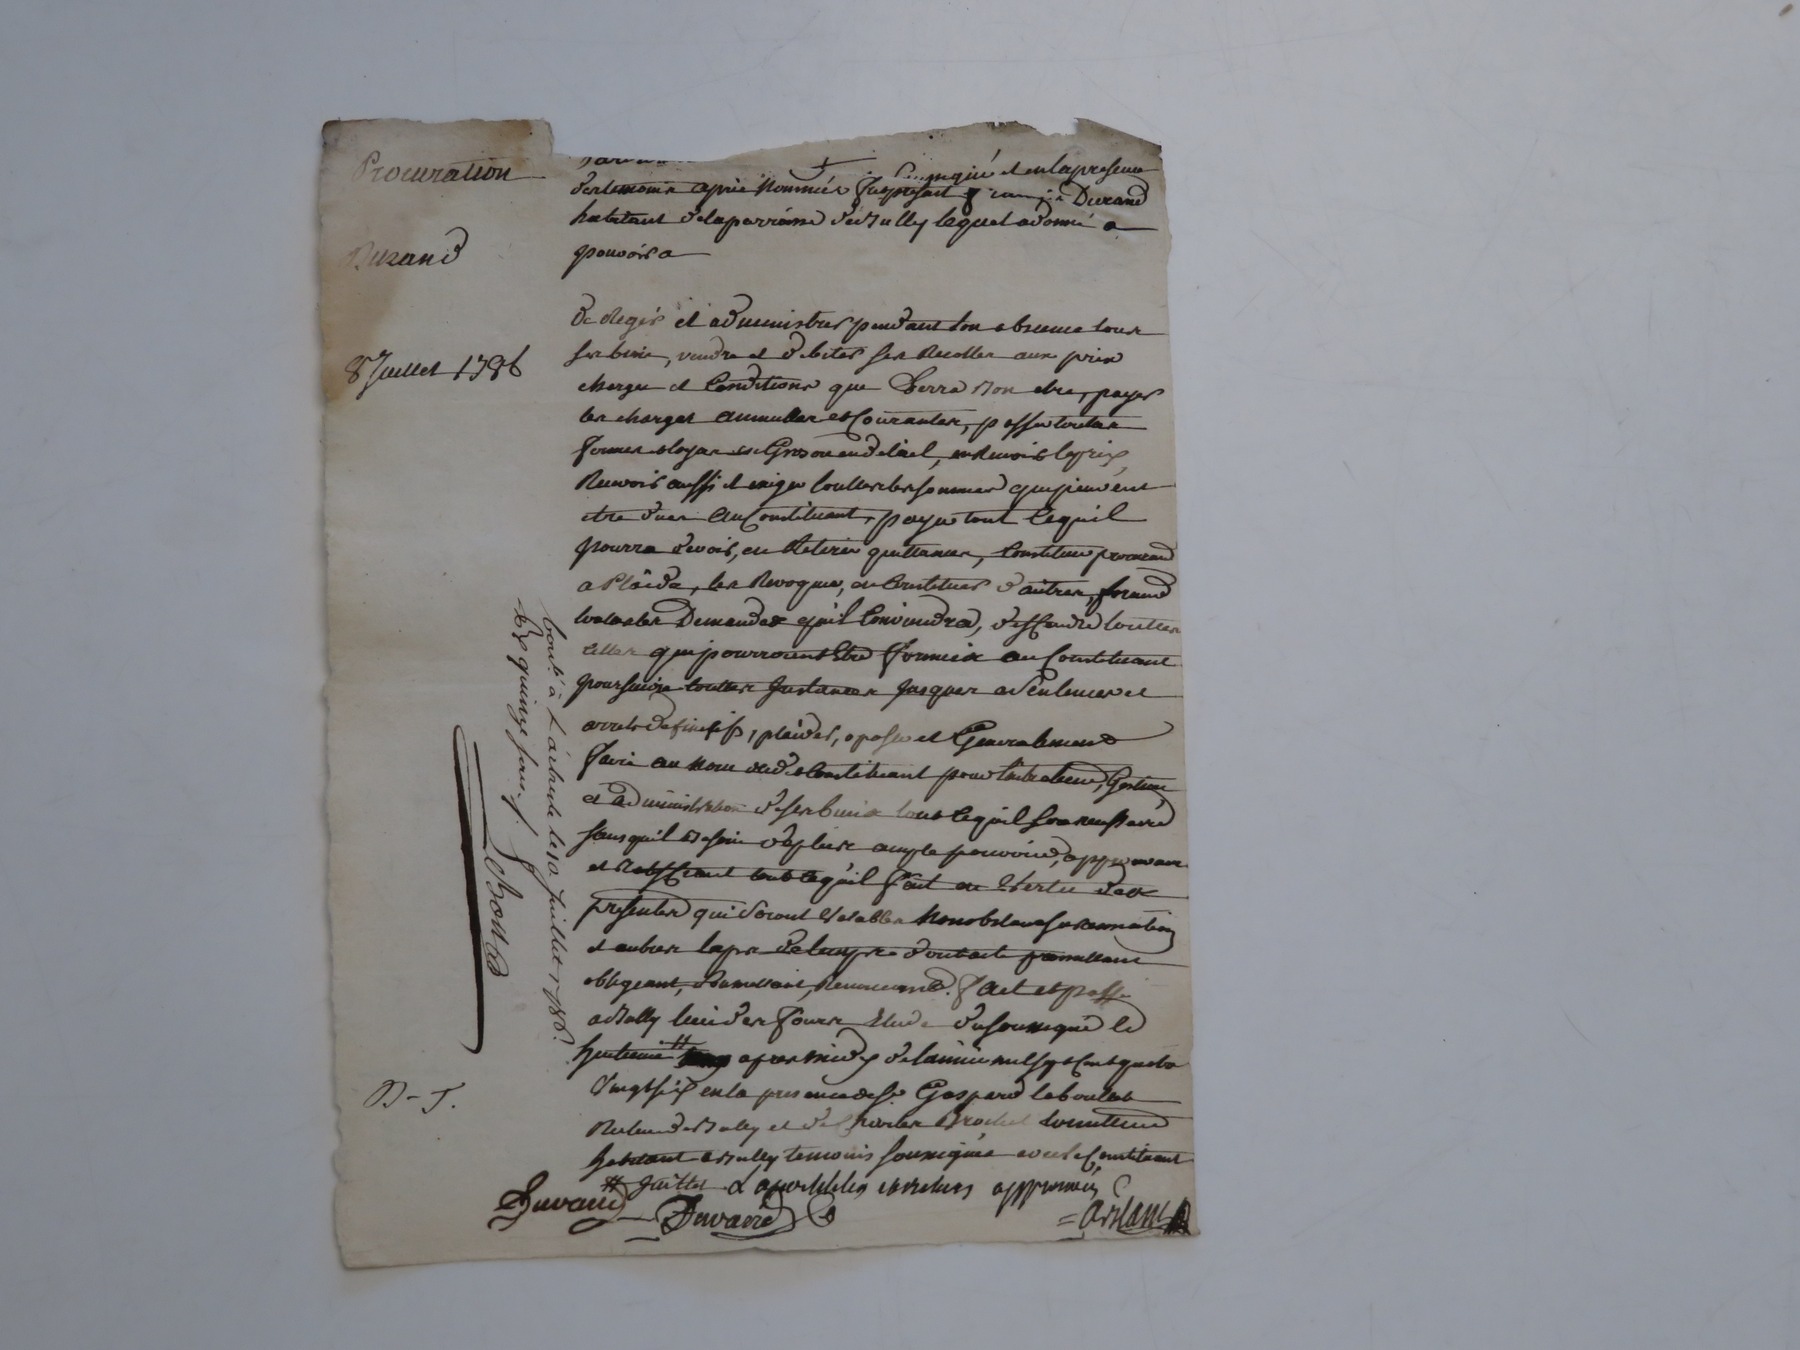 Procuration
Durand
8 Juillet 1786
soussigné et en la presence
des temoins aprés nommés fut present Durand
habitant de la parroisse de Bully lequel a donné
pouvoir a
De regir et administrer pendant son absence tous
ses biens, vendre et debiter ses Recoltes aux prix
charges et Conditions que Verra bon etre, payer
les charges annuelles et Courantes, passer touttes
fermes en Gros ou en détail, en Recevoir le prix,
Recevoir aussi et exiger touttes les sommes qui peuvent
etre dues au Constituant, payer tout ce qu'il
pourra devoir, en Retirer quittances, Constituer procureur
a Plaider, les Revoquer, en Constituer d'autres, former
touttes les Demandes qu'il Conviendra, deffendre touttes
celles qui pourroient etre formées au Constituant
poursuivre touttes Instances jusques a Sentences et
arrets definitifs, plaider, oposer et Generalement
faire au nom dud. Constituant pour Gestion
et administration de ses biens tout ce qu'il sera necessaire
sans qu'il Besoin de plus ample pouvoir, approuvant
et Ratiffiant tout ce qu'il fait en Vertu des
presentes qui Seront Valables Nonobstant surannation
et autres laps de temps dont acte promettant
obligeant, Soumettant, Renonceant. fait et passé
a Bully Etude du soussigné le
huitieme # apres midy de l'année mil sept Cent quatre
Vingt six en la presence de sr. Gaspard
de Bully et de Brochet
habitant a Bully temoins soussignés avec le Constituant
# Juillet approuvés
Durand Durand
Cont. à L'arbresle le 10 juillet 1786.
Reçu quinze sous f.
B-T.